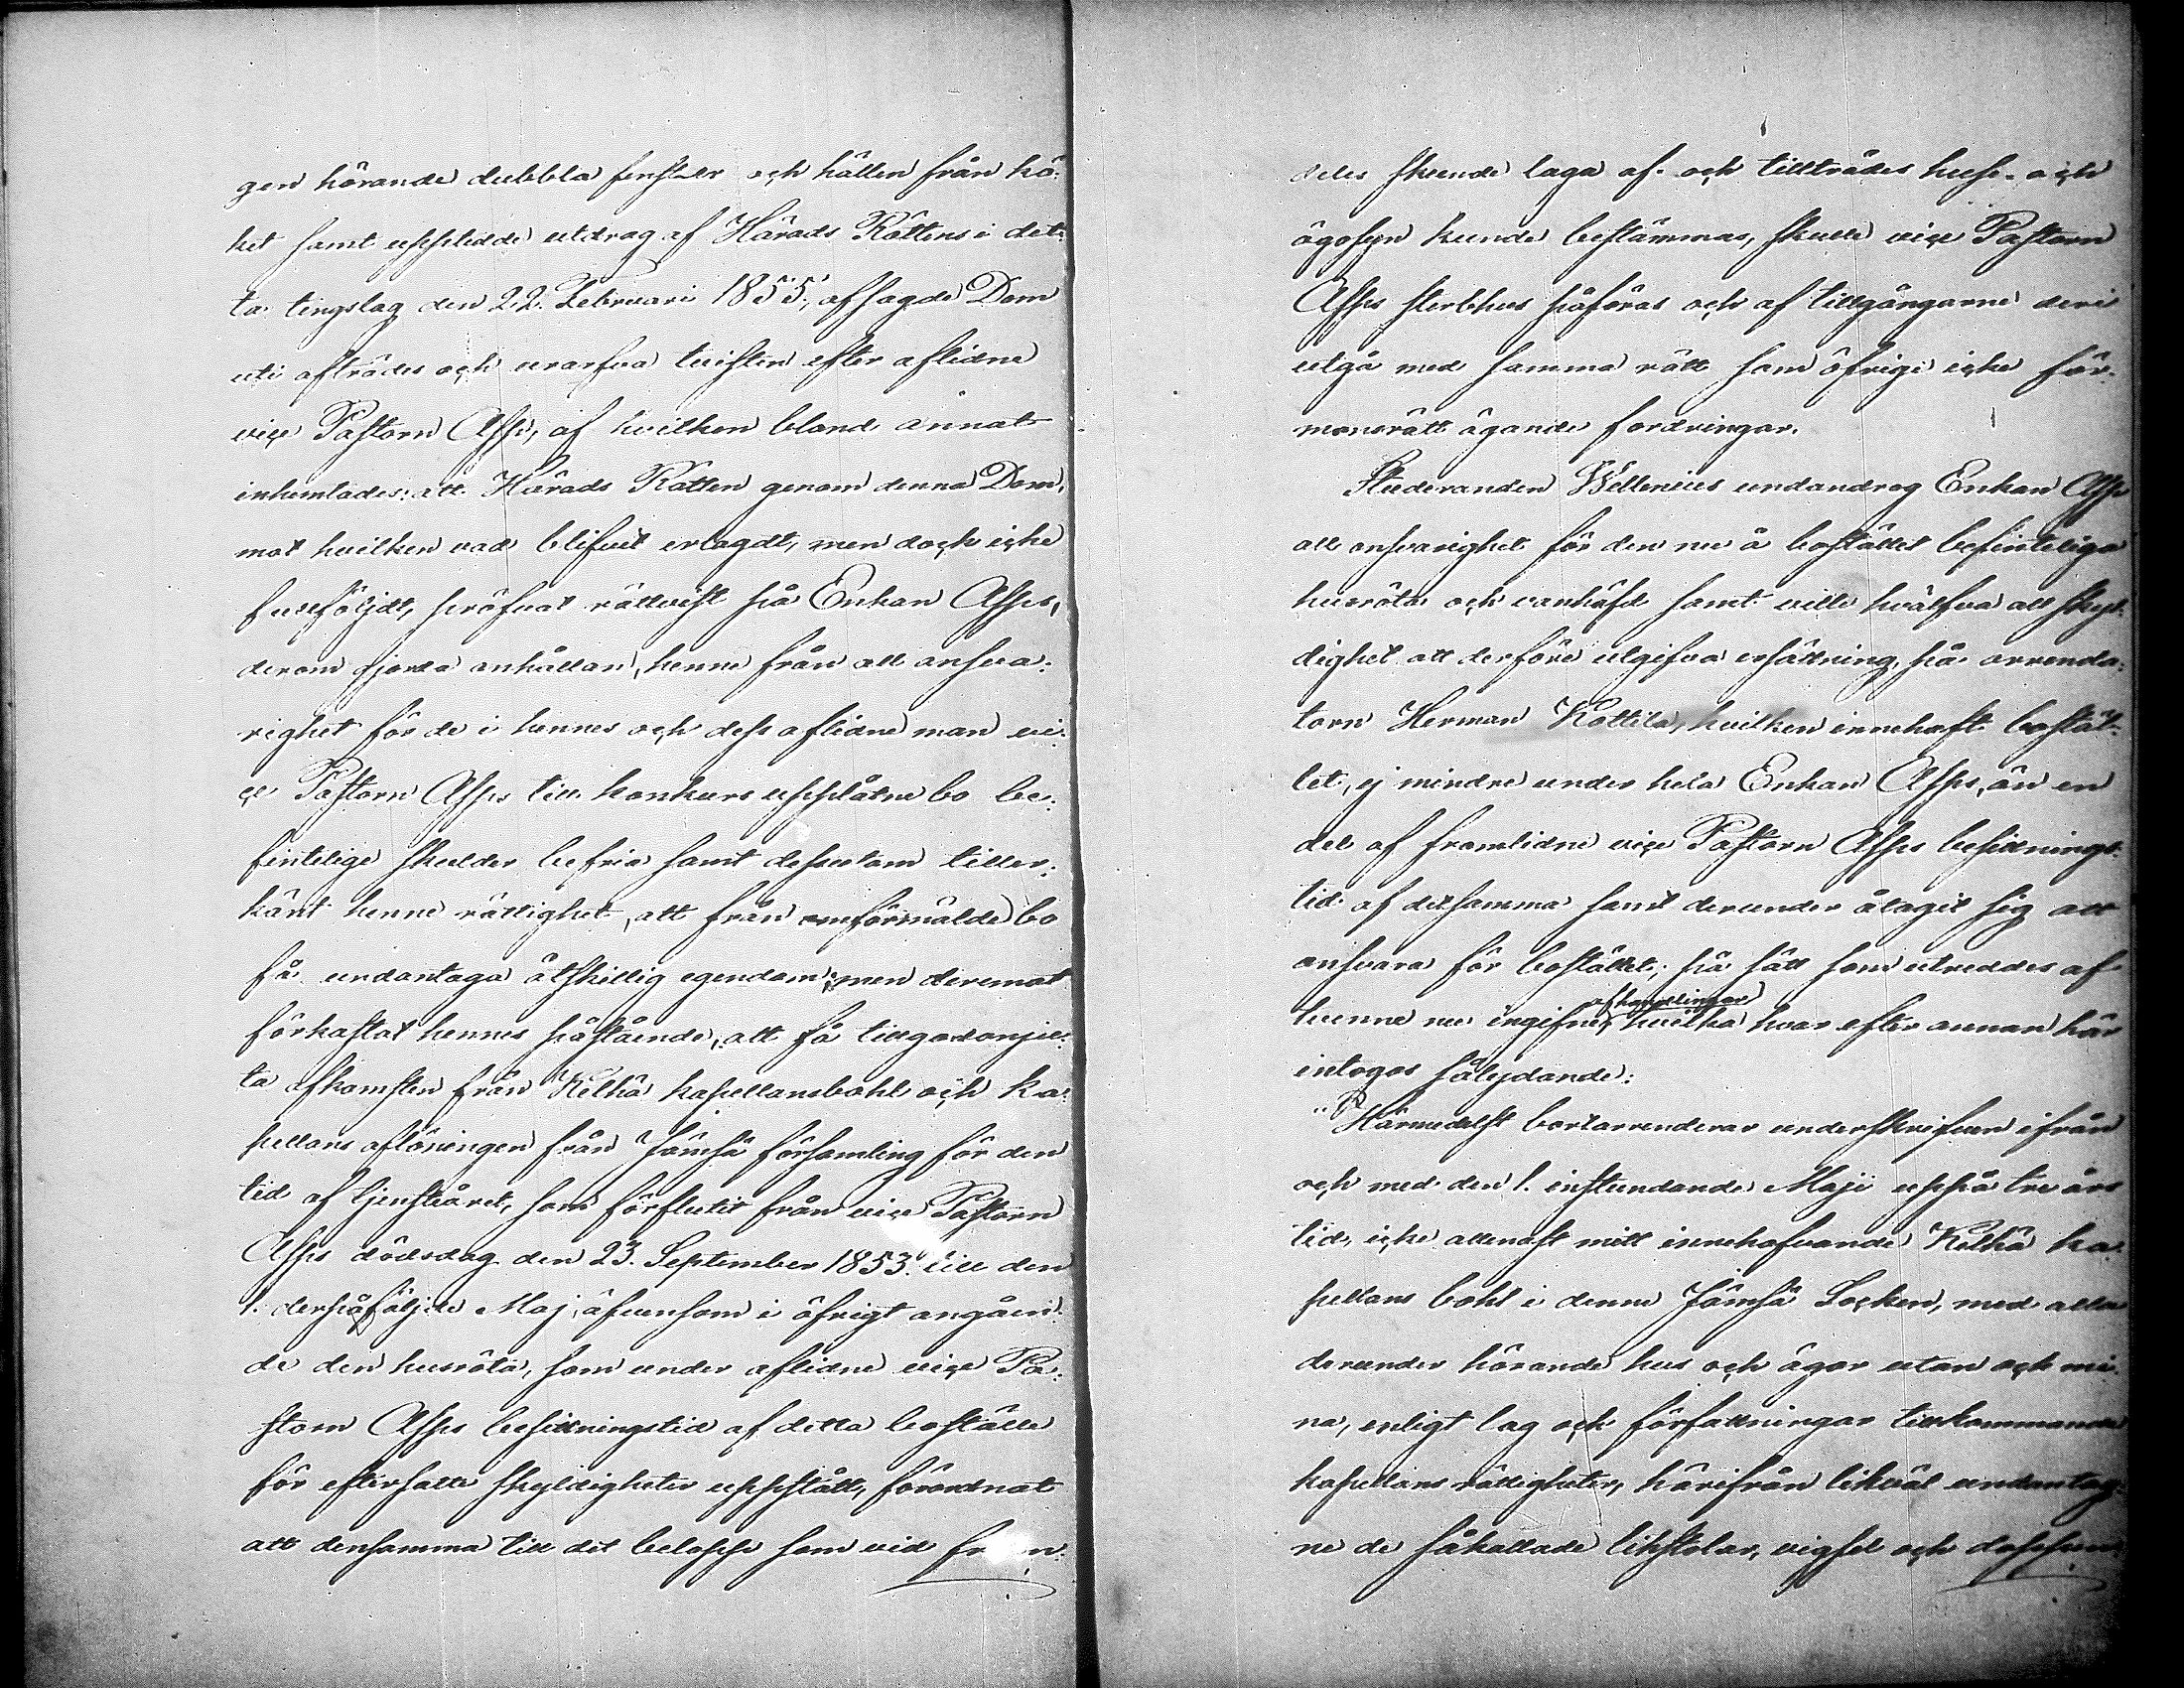 gen hörande dubbla fenster och hällen från kö-
ket samt uppstädde utdrag af Härads Rättens i det-
ta tingslag den 22. Februari 1855, afsagde Dom
uti afträdes och urarfva tvisten efter aflidne
vice Pastorn Asp, af hvilken bland annat
inhemtades: att Härads Rätten genom denna Dom,
mot hvilken vad blifvit erlagdt, men dock icke
fullföljdt, pröfvat rättvist på Enkan Asps,
derom gjorda anhållan, henne från all ansva-
righet för de i hennes och dess aflidne man vi-
ce Pastorn Asps till konkurs upplåtne bo be-
fintelige skulder befria samt dessutom tiller-
känt henne rättighet, att från omförmälde bo
få undantaga åtskillig egendom; men deremot
förkastat hennes påstående, att få tillgodonjut-
ta afkomsten från Kelhä kapellansbohl och ka-
pellans aflöningen från Jämsä församling för den
tid af tjensteåret, som förflutit från vice Pastorn
Asps dödsdag den 23. September 1853. till den
1. derpåföljde Maj, äfvensom i öfrigt angåen-
de den husröta, som under aflidne vice Pa-
storn Asps besittningstid af detta boställe
för eftersatte skyldigheter uppstått, förordnat
att densamma till det belopp som vid fr n-
deles skeende laga af- och tillträdes huse- och
ägosyn kunde bestämmas, skulle vice Pastorn
Asps sterbhus påföras och af tillgångarne deri
utgå med samma rätt som öfrige icke för-
monsrätt ägande fordringar.
Studeranden Wellenius undandrog Enkan Asp
all ansvarighet för den nu å bostället befinteliga
husröta och vanhäfd samt ville hvälfva all skyl-
dighet att derföre utgifva ersättning, på arrenda-
torn Herman Kottila, hvilken innehaft bostäl-
let, ej mindre under hela Enkan Asps, än en
del af framlidne vice Pastorn Asps besittnings-
tid af detsamma samt derunder ålagit sig att
ansvara för bostället; på sätt som utreddes af
tvenne nu ingifne afhandlingar hvilka hvar efter annan här
intogos sålydande:
"Härmedelst bortarrenderar underskrifven ifrån
och med den 1. instundande Maji uppå tre års
tid, icke allenast mitt innehafvande Kelhä ka-
pellans bohl i denne Jämsä Socken, med alla
derunder hörande hus och ägor utan och mi-
na, enligt lag och författningar tillkommande
kapellans rättigheter, härifrån likväl undantag-
ne de såkallade likstolar, vigsel och dopsun-